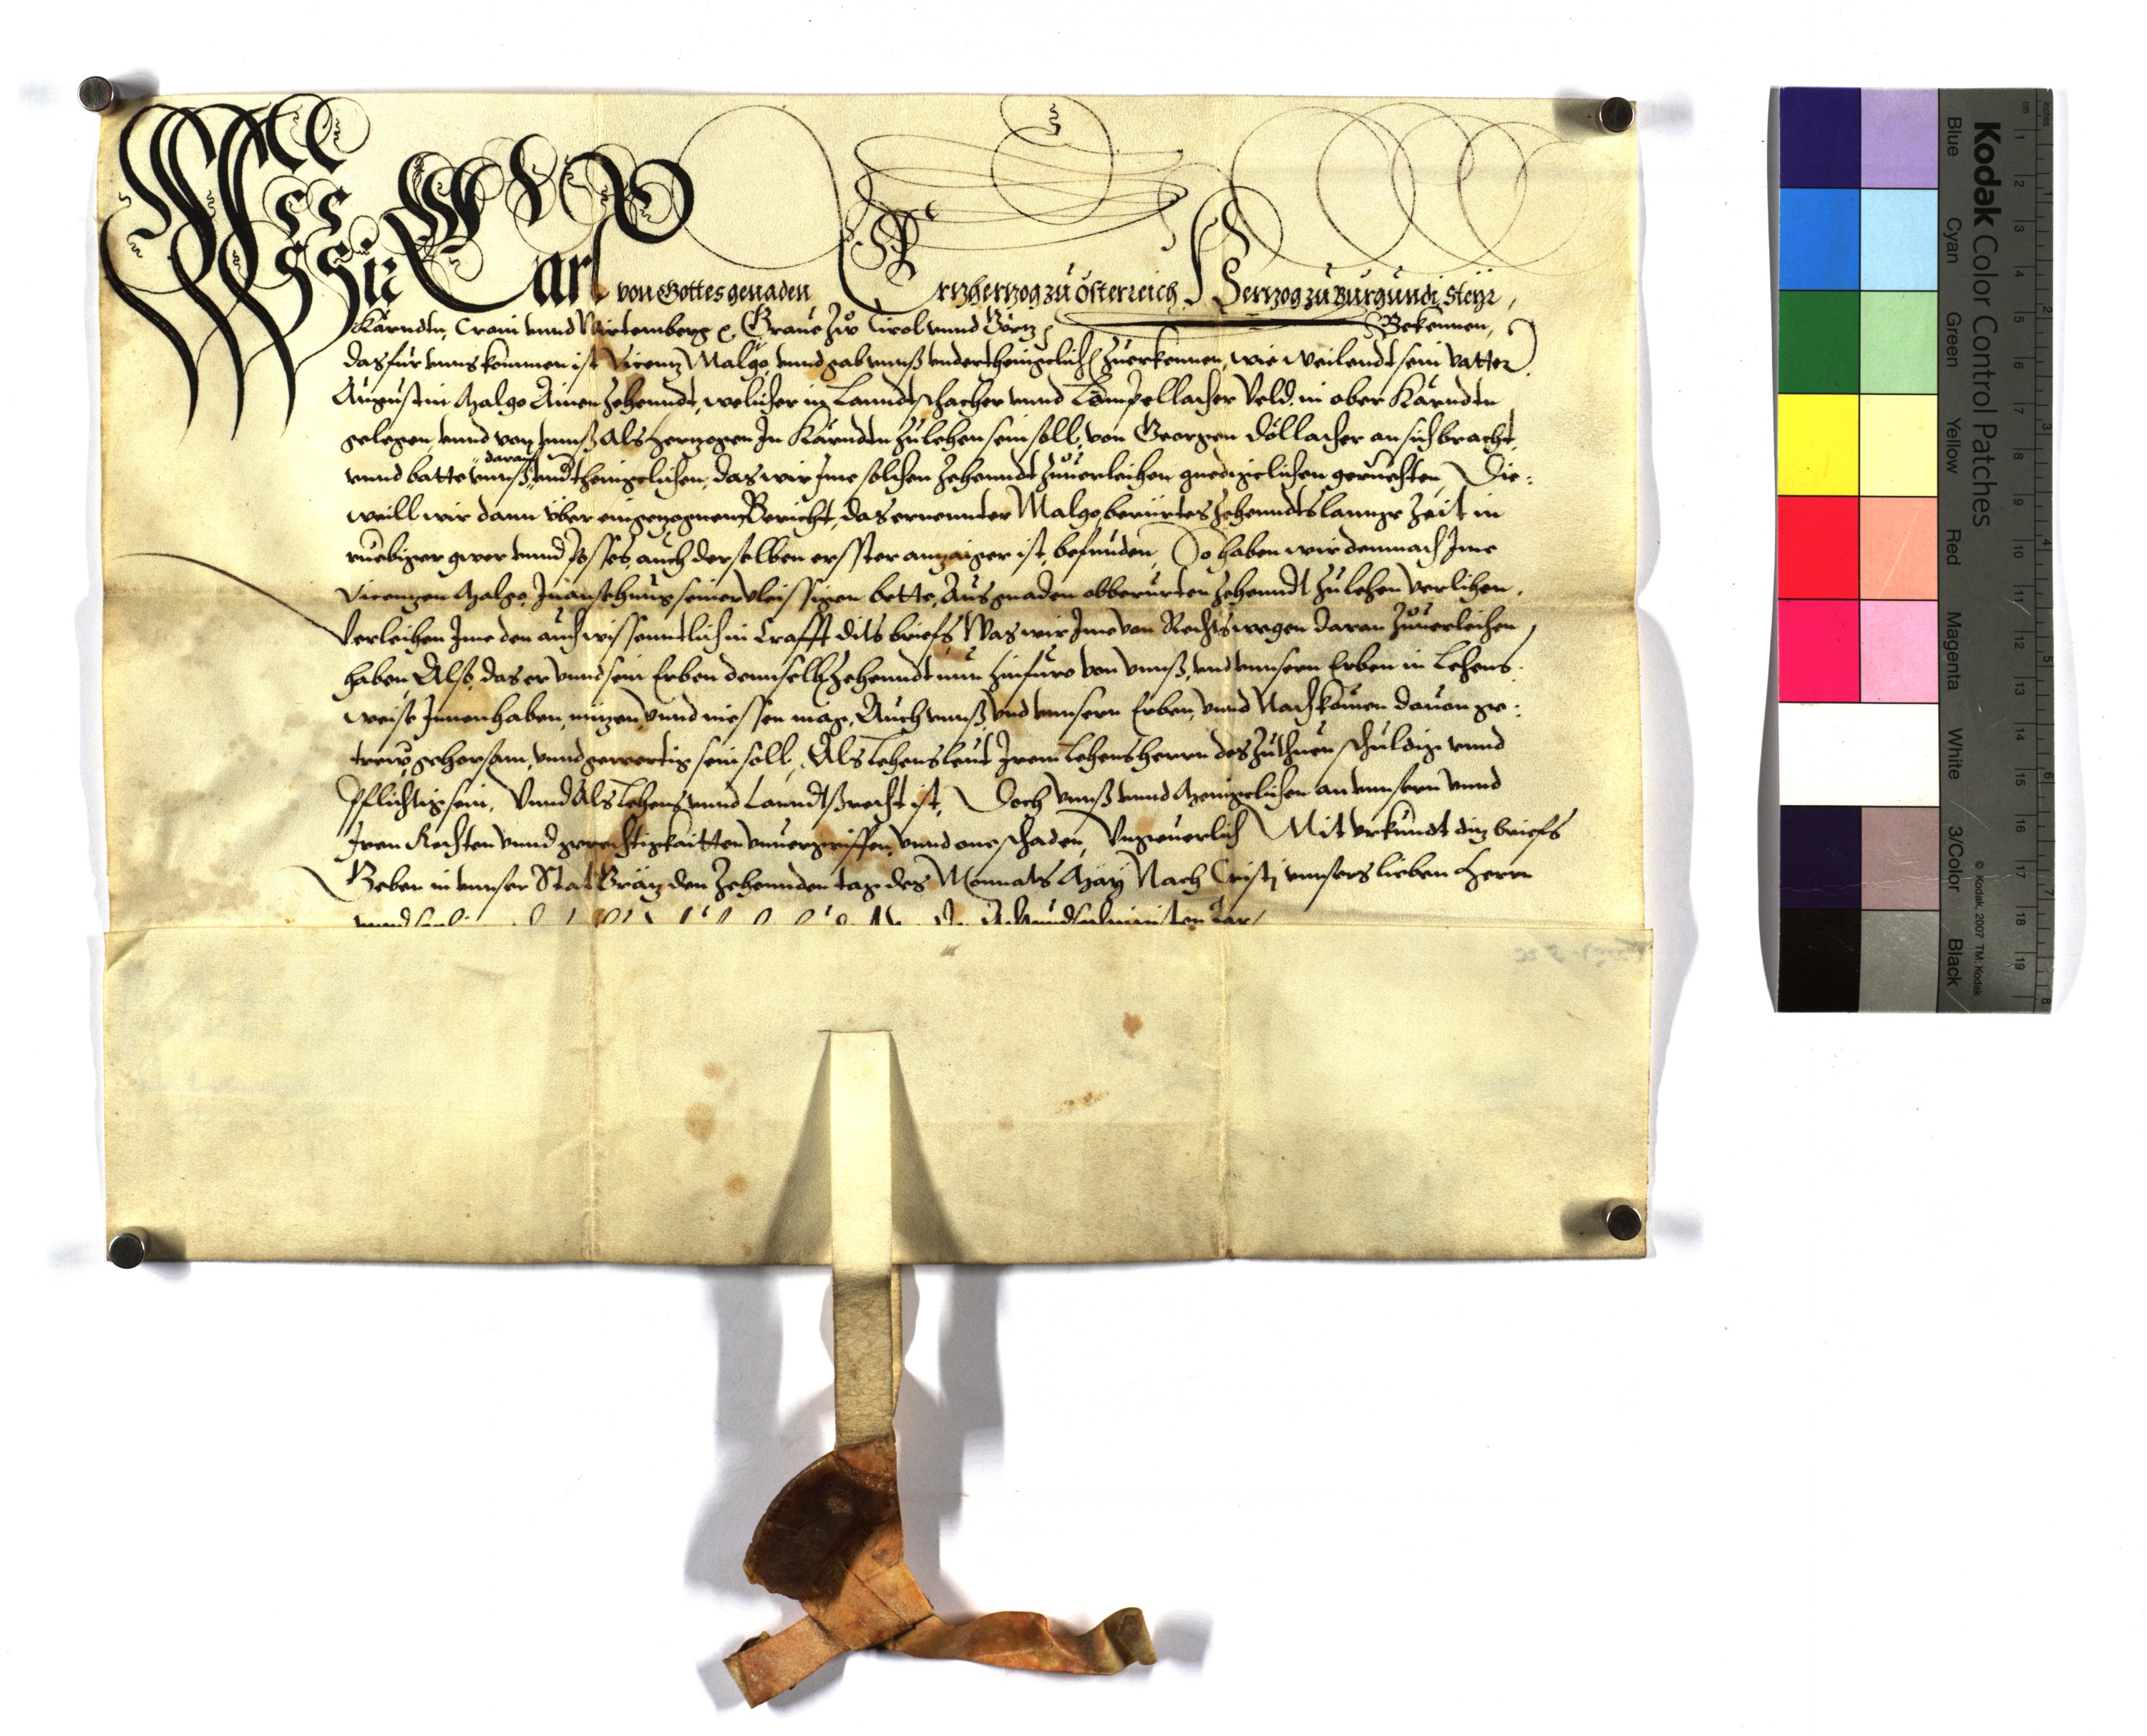 Wir Carl von Gottes genaden Ertzhertzog zu Österreich Hertzog zu Burgundi, Steyr,
Kärndtn, Crain vnnd Wirtemberg ꝛc. Graue zu Tirol vnnd Görtz ꝛc Bekennen,
das für vnns kommen ist Vicenntz Malgo, vnnd gab vnnß vnderthenigclich zuerkennen, wie weilendt sein vatter
Augustin Malgo Ainen Zehenndt, welicher in Lanndtschacher vnnd Lampellacher Veld in ober Kärndtn
gelegen, vnnd von vnnß als Hertzogen In Kärndtn zu lehen sein soll, von Georgen Döllacher an sich bracht,
vnnd batte vnnß darauf vndthenigclichen, das wir Ime solchen Zehenndt zuuerleihen gnedigclichen geruehten, Die-
weill wir dann über eingezognem Bericht, das ernennter Malgo berürtes Zehenndts lannge Zeit in
ruebiger gwer vnnd posses, auch derselben erster anzaiger ist, befunden, So haben wir demnach Ime
Vicentzen Malgo, In ansehung seiner vleissigen bette, Aus gnaden obberürten Zehenndt zu lehen verlihen,
Verleihen Ime den auch wissenntlich in Crafft dits briefs, Was wir Ime von Rechts wegen daran zuuerleihen
haben Also, das er vnnd sein Erben dennselb Zehenndt nun hinfuro von vnnß, vnd vnnsern Erben in Lehens-
weise Innen haben, nutzen, vnnd niessen mag, Auch vnnß, vnd vnnsern Erben, vnnd Nachkomen dauon ge-
trew, gehorsam, vnnd gewertig sein soll, Als Lehensleut Irem Lehensherrn des zuthuen schuldig vnnd
Pflichtig sein, Vnnd Als Lehens, vnnd Lanndtßrecht ist, Doch vnnß vnnd Menigclichen an vnnsern vnnd
Iren Rechten vnnd gerechtigkaitten vnuergriffen, vnnd one schaden, Vngeuerlich Mit vrkundt ditz briefs
Geben in vnnser Stat Grätz den Zehennden tag des Monnats Maÿ Nach Cristj vnnsers lieben Herrn
Kodak Color Control Patches
Blue Cyan Green Yellow Red Magenta White 3/Color Black
© Kodak, 2007 TM: Kodak
inches 1 2 3 4 5 6 7 8
cm 1 2 3 4 5 6 7 8 9 10 11 12 13 14 15 16 17 18 19